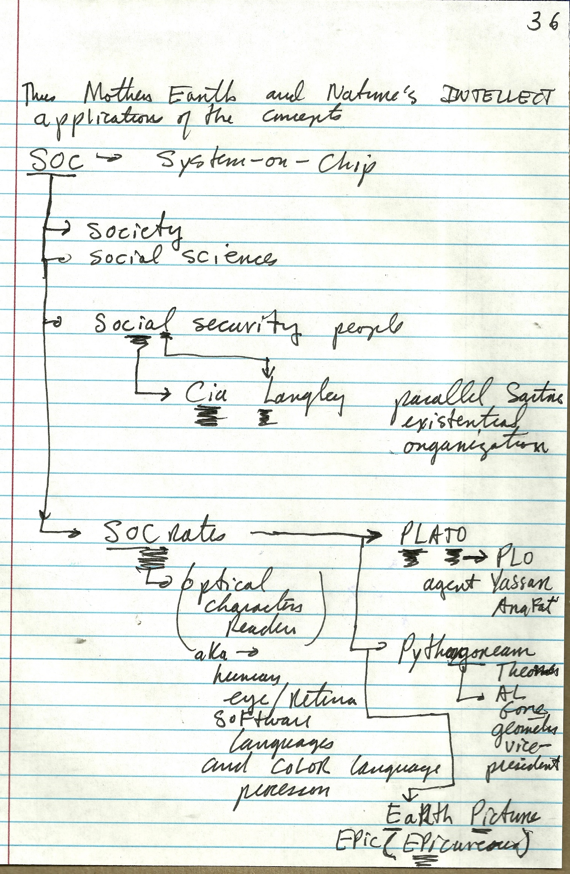 36
Thus Mother Earth and Nature's INTELLECT
application of the concepts
SOC → System-on-Chip
→ Society
→ social sciences
→ Social security people
→ Cia Langley
parallel
existential
organization
SOCrates → PLATO
→ PLO
agent Yassar
AraFat
→ optical
characters
Reader
aka →
human
eye/Retina
Software
languages
and COLOR language
processor
→ Pythagoream
Theorem
→ AL
Gore
geometer
vice-
president
EaRth Picture
EPic (EPicureous)